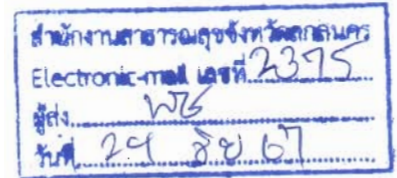 สำนักงานสาธารณสุขจังหวัดสกลนคร
Electronic-mail เลขที่ 2375
ผู้ส่ง
วันที่ 29 67